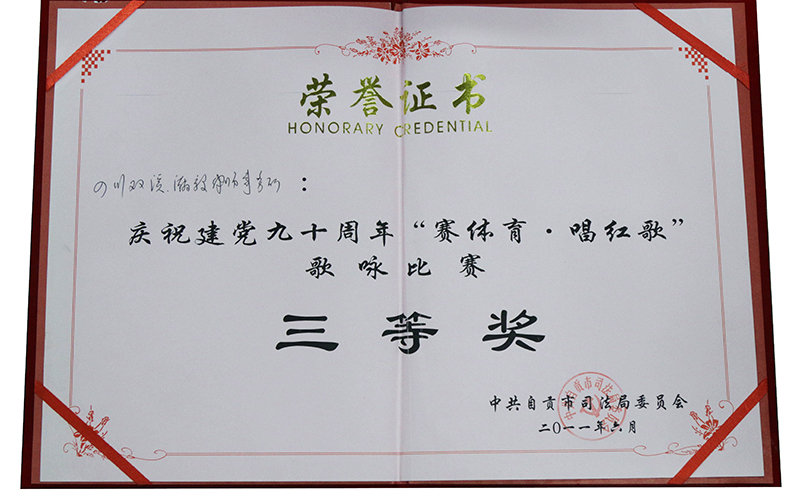 荣誉证书
HONORARY CREDENTIAL
四川双溪、瀚毅律师事务所：
庆祝建党九十周年“赛体育·唱红歌”
歌咏比赛
三等奖
中共自贡市司法局委员会
二〇一一年六月